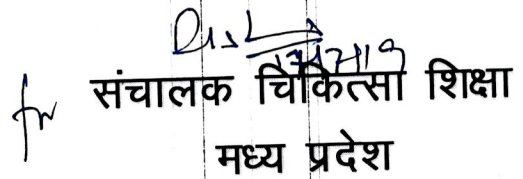 for संचालक चिकित्सा शिक्षा
मध्य प्रदेश